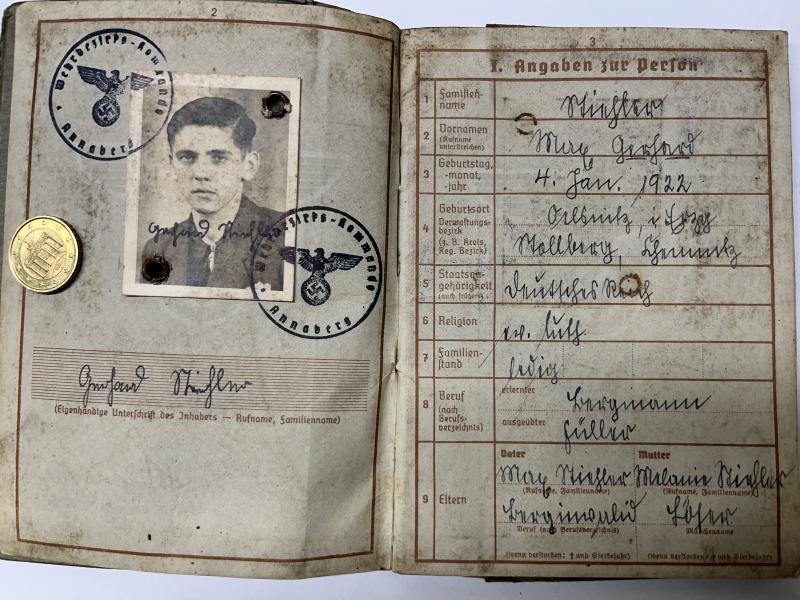 2
Wehrbezirks-Kommando
Annaberg
Gerhard Stiehler
Wehrbezirks-Kommando
Annaberg
Gerhard Stiehler
(Eigenhändige Unterschrift des Inhabers — Rufname, Familienname)
3
I. Angaben zur Person
1 Familien-
name
Stiehler
2 Vornamen
(Rufname
unterstreichen)
Max Gerhard
3 Geburtstag,
-monat,
-jahr
4. Jan. 1922
4 Geburtsort
Verwaltungs-
bezirk
(z. B. Kreis,
Reg. Bezirk)
Oelsnitz, i. Erzg
Stollberg, Chemnitz
5 Staatsan-
gehörigkeit
(auch frühere)
Deutsches Reich
6 Religion
ev. luth
7 Familien-
stand
ledig
8 Beruf
(nach
Berufs-
verzeichnis)
erlernter
Bergmann
ausgeübter
Füller
9 Eltern
Vater
Mutter
Max Stiehler
Melanie Stiehler
(Rufname, Familienname)
(Rufname, Familienname)
Löser
Beruf (nach Berufsverzeichnis)
Mädchenname
(wenn verstorben: † und Sterbejahr)
(wenn verstorben: † und Sterbejahr)